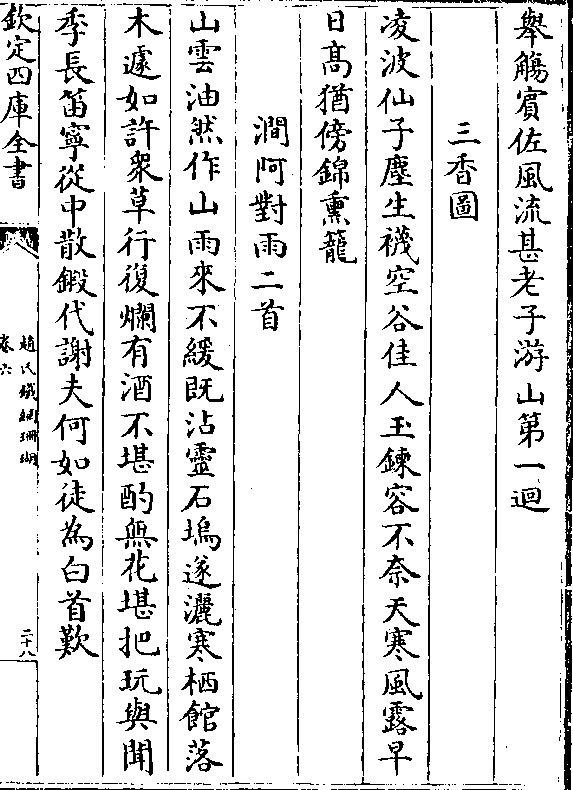 舉觴賓佐風流甚老子游山第一迴
三香圖
凌波仙子塵生襪空谷佳人玉鍊容不奈天寒風露早
日髙猶傍錦熏籠
澗阿對雨二首
山雲油然作山雨來不緩既沾靈石塢遂灑寒栖館落
木遽如許衆草行復爛有酒不堪酌無花堪把玩與聞
季長笛寧從中散鍛代謝夫何如徒為白首歎
欽定四庫全書
趙氏鐵網珊瑚
卷六
二十八